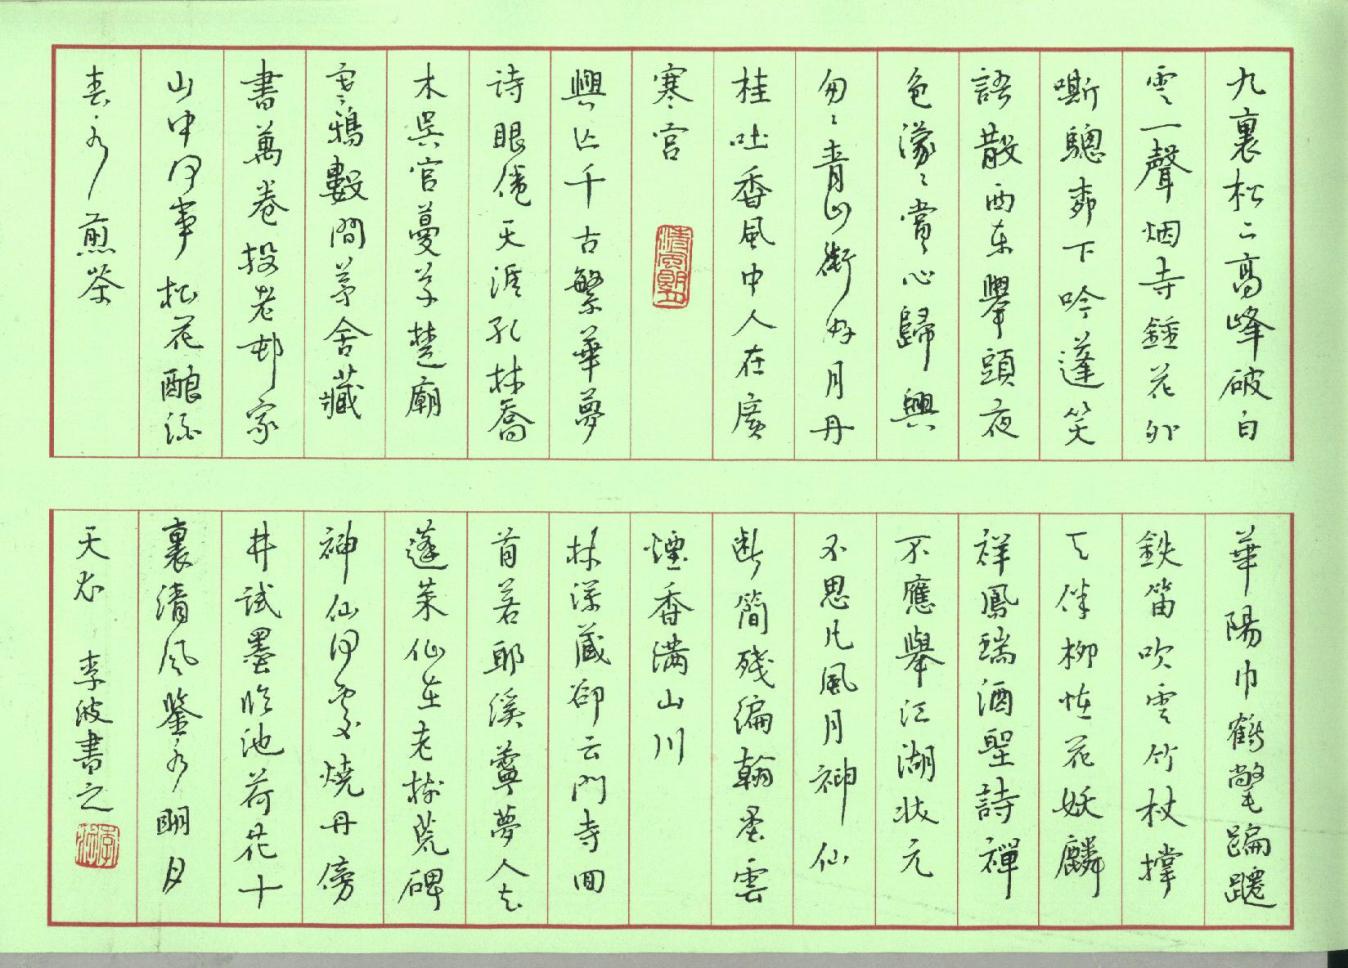 九裏松二高峰破白
雲一聲烟寺鍾花外
嘶驄柳下吟蓬笑
語散西东舉頭夜
色濛〻賞心歸興
匆〻青山銜好月丹
桂吐香風中人在廣
寒宮
興亡千古繁華夢
诗眼倦天涯孔林喬
木吴宫蔓草楚廟
寒鴉數間茅舍藏
書萬卷投老邨家
山中何事松花酿酒
春水煎茶
華陽巾鶴氅蹁躚
鉄笛吹雲竹杖撑
天伴柳怪花妖麟
祥鳳瑞酒聖詩禪
不應舉江湖状元
不思凡風月神仙
断簡殘编翰墨雲
煙香滿山川
林深藏却云門寺回
首若耶溪苧夢人去
蓬莱仙在老樹荒碑
神仙何處燒丹傍
井試墨临池荷花十
裏清风鉴水明月
天衣 李波書之